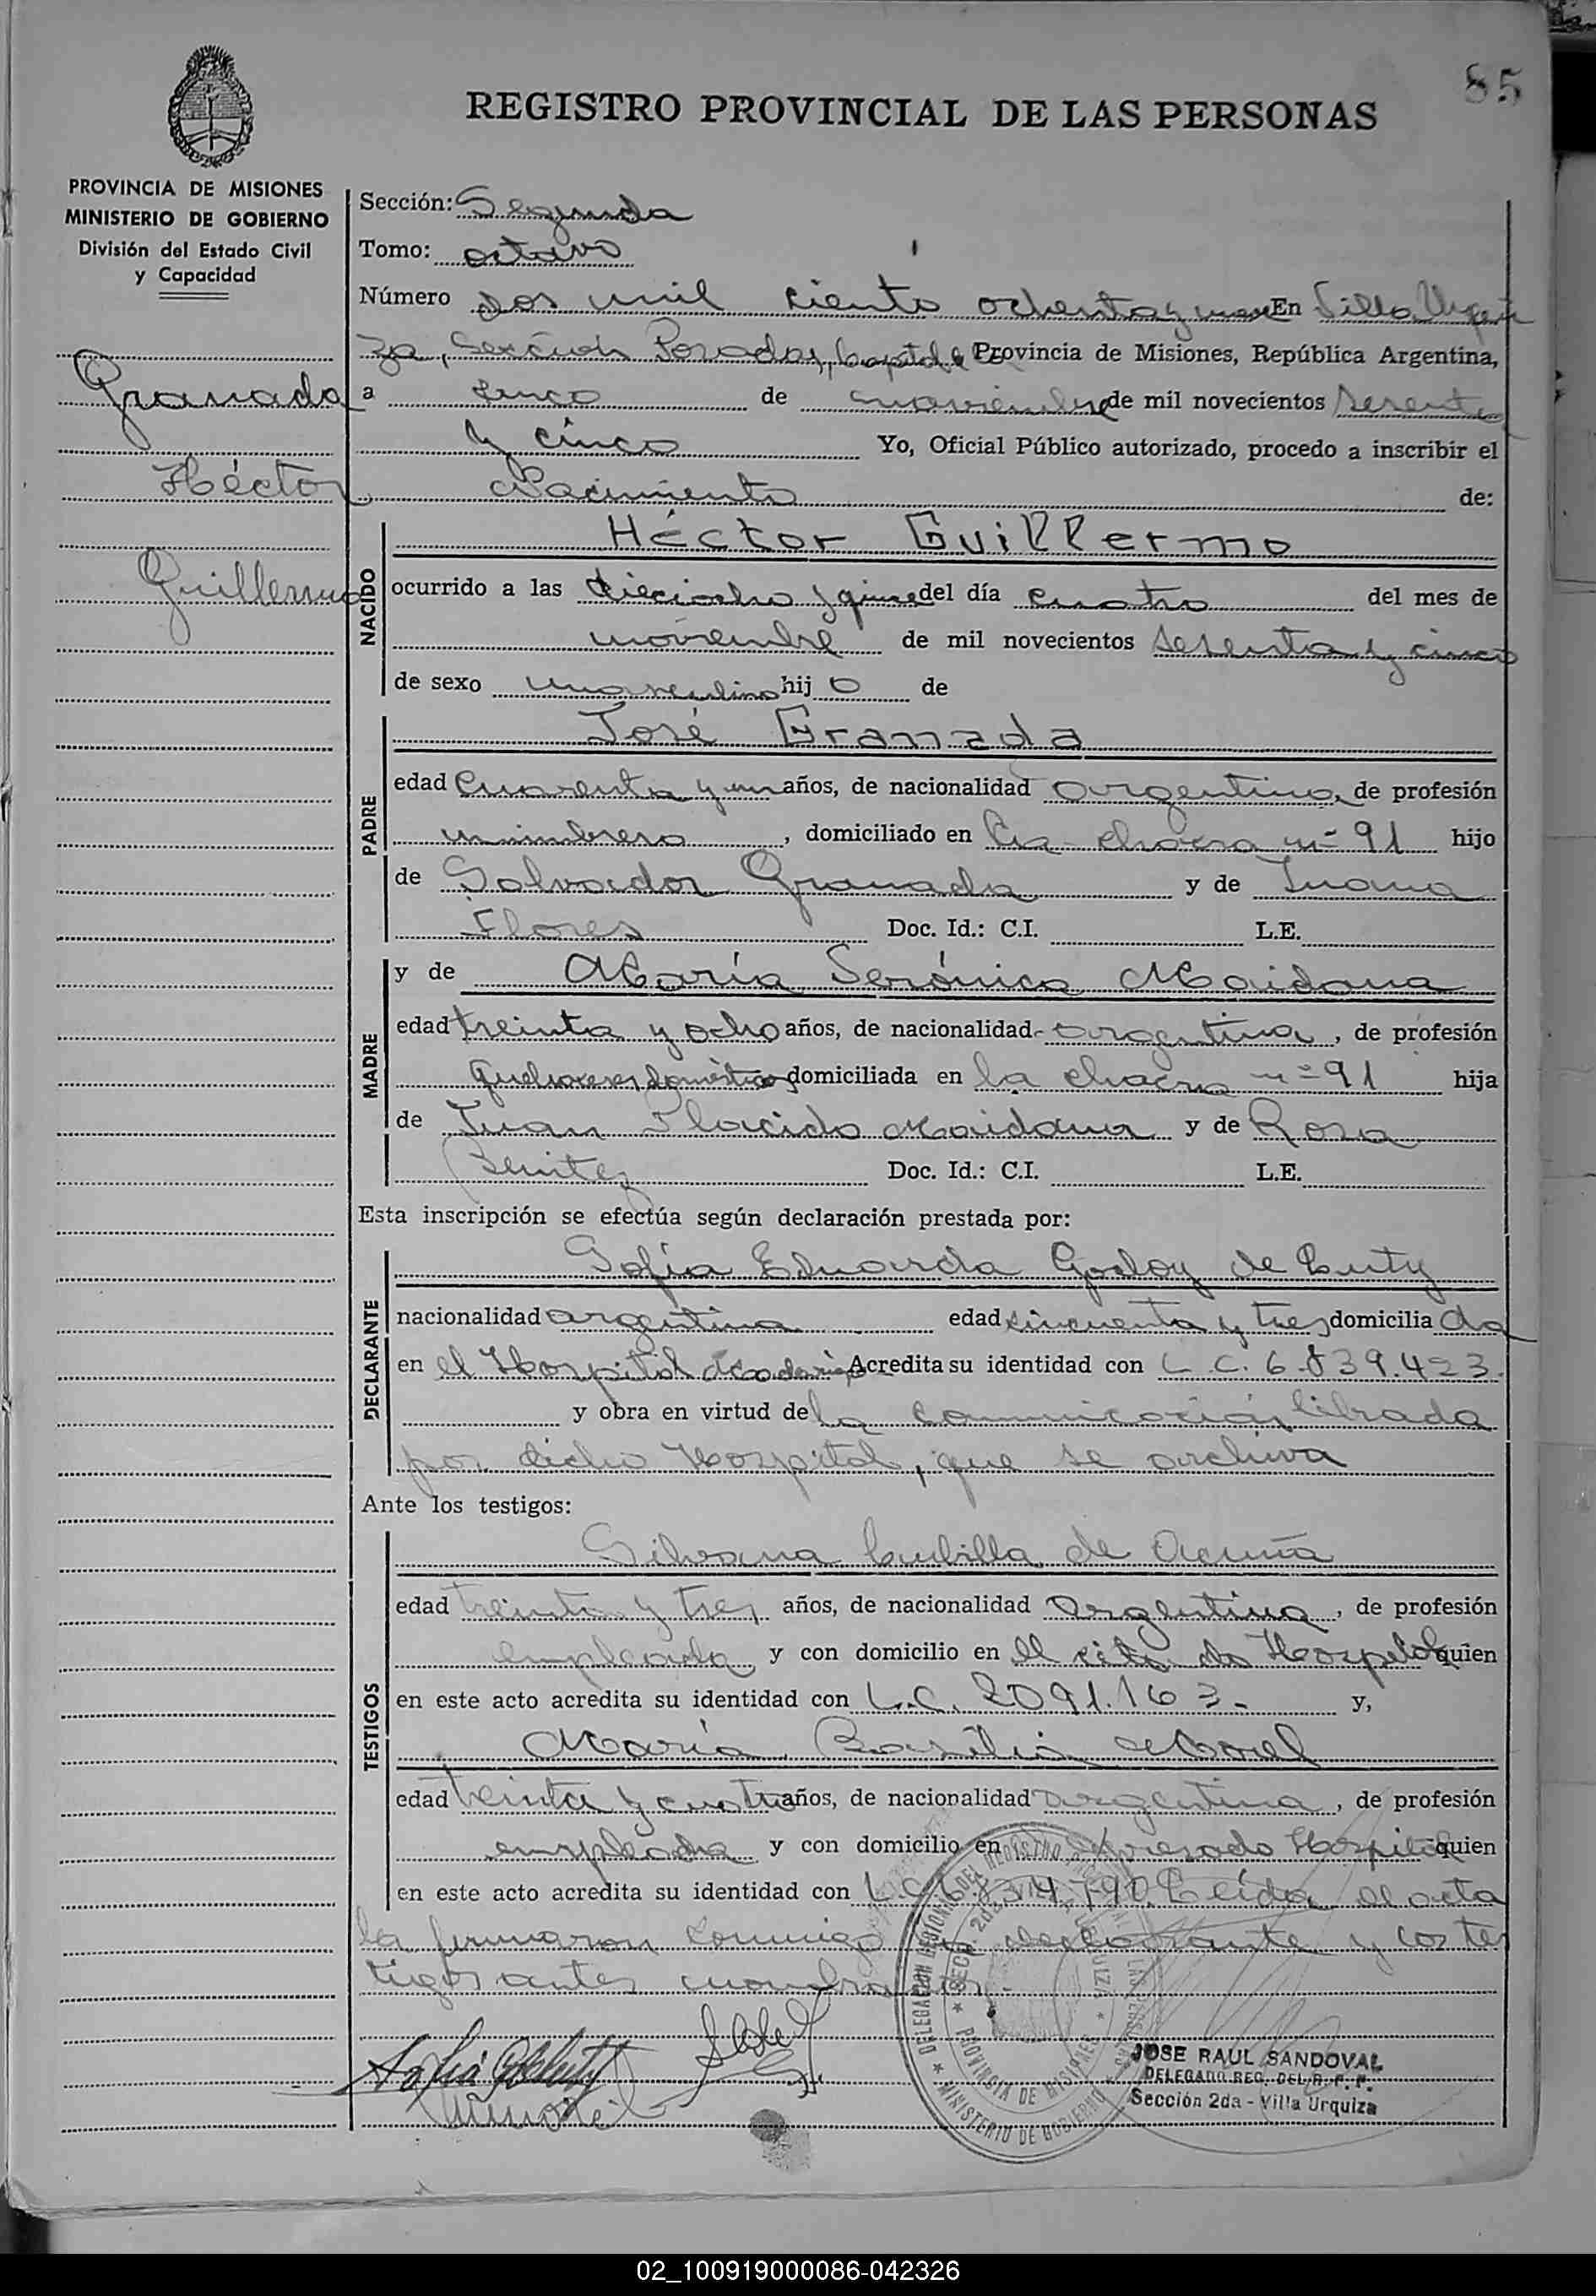 85
REGISTRO PROVINCIAL DE LAS PERSONAS
PROVINCIA DE MISIONES
MINISTERIO DE GOBIERNO
División del Estado Civil
y Capacidad
Granada
Héctor
Guillermo
Sección: Segunda
Tomo: octavo
Número dos mil ciento ochenta y En Villa Urqui
za, Sección Posadas, Capital Provincia de Misiones, República Argentina,
a cinco de noviembre de mil novecientos setenta
y cinco Yo, Oficial Público autorizado, procedo a inscribir el
Nacimiento de:
NACIDO
Héctor Guillermo
ocurrido a las dieciocho y quince del día cuatro del mes de
noviembre de mil novecientos setenta y cinco
de sexo masculino hijo de
PADRE
José Granada
edad Cuarenta y un años, de nacionalidad argentina, de profesión
mimbrero, domiciliado en la chacra nº 91 hijo
de Salvador Granada y de Juana
Flores Doc. Id.: C.I. L.E.
MADRE
y de María Verónica Maidana
edad treinta y ocho años, de nacionalidad argentina, de profesión
quehaceres domésticos domiciliada en la chacra nº 91 hija
de Juan Placido Maidana y de Rosa
Benitez Doc. Id.: C.I. L.E.
Esta inscripción se efectúa según declaración prestada por:
DECLARANTE
Sofía Eduarda Godoy de
nacionalidad argentina edad cincuenta y tres domiciliada
en el Hospital Madariaga Acredita su identidad con L.C. 6.839.423
y obra en virtud de la comunicación librada
por dicho Hospital, que se archiva
Ante los testigos:
TESTIGOS
Silvana Cubilla de Acuña
edad treinta y tres años, de nacionalidad argentina, de profesión
empleada y con domicilio en el citado Hospital quien
en este acto acredita su identidad con L.C. 2091.163.- y,
María Basilia Morel
edad treinta y cuatro años, de nacionalidad argentina, de profesión
empleada y con domicilio en expresado Hospital quien
en este acto acredita su identidad con L.C. Leída el acta
la firmaron conmigo declarante y los tes
tigos antes
DELEGACION
PROVINCIA DE MISIONES
MINISTERIO DE GOBIERNO
JOSE RAUL SANDOVAL
DELEGADO REG. DEL R. P. P.
Sección 2da - Villa Urquiza
02_100919000086-042326